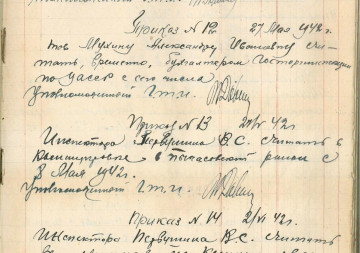 Приказ № 12 27 Мая 1942 г.
тов Мухину Александру Ивановну счи-
тать, временно, бухгалтером Госторгинспекции
по УзССР с его числа
Уполномоченный Г.т.и.
Приказ № 13 42 г
Инспектора Первушина В.С. Считать в
командировке в район с
8 Мая 1942 г.
Уполномоченный Г.т.и.
Приказ № 14 2/VI 42 г.
Инспектора Первушина В.С. Считать